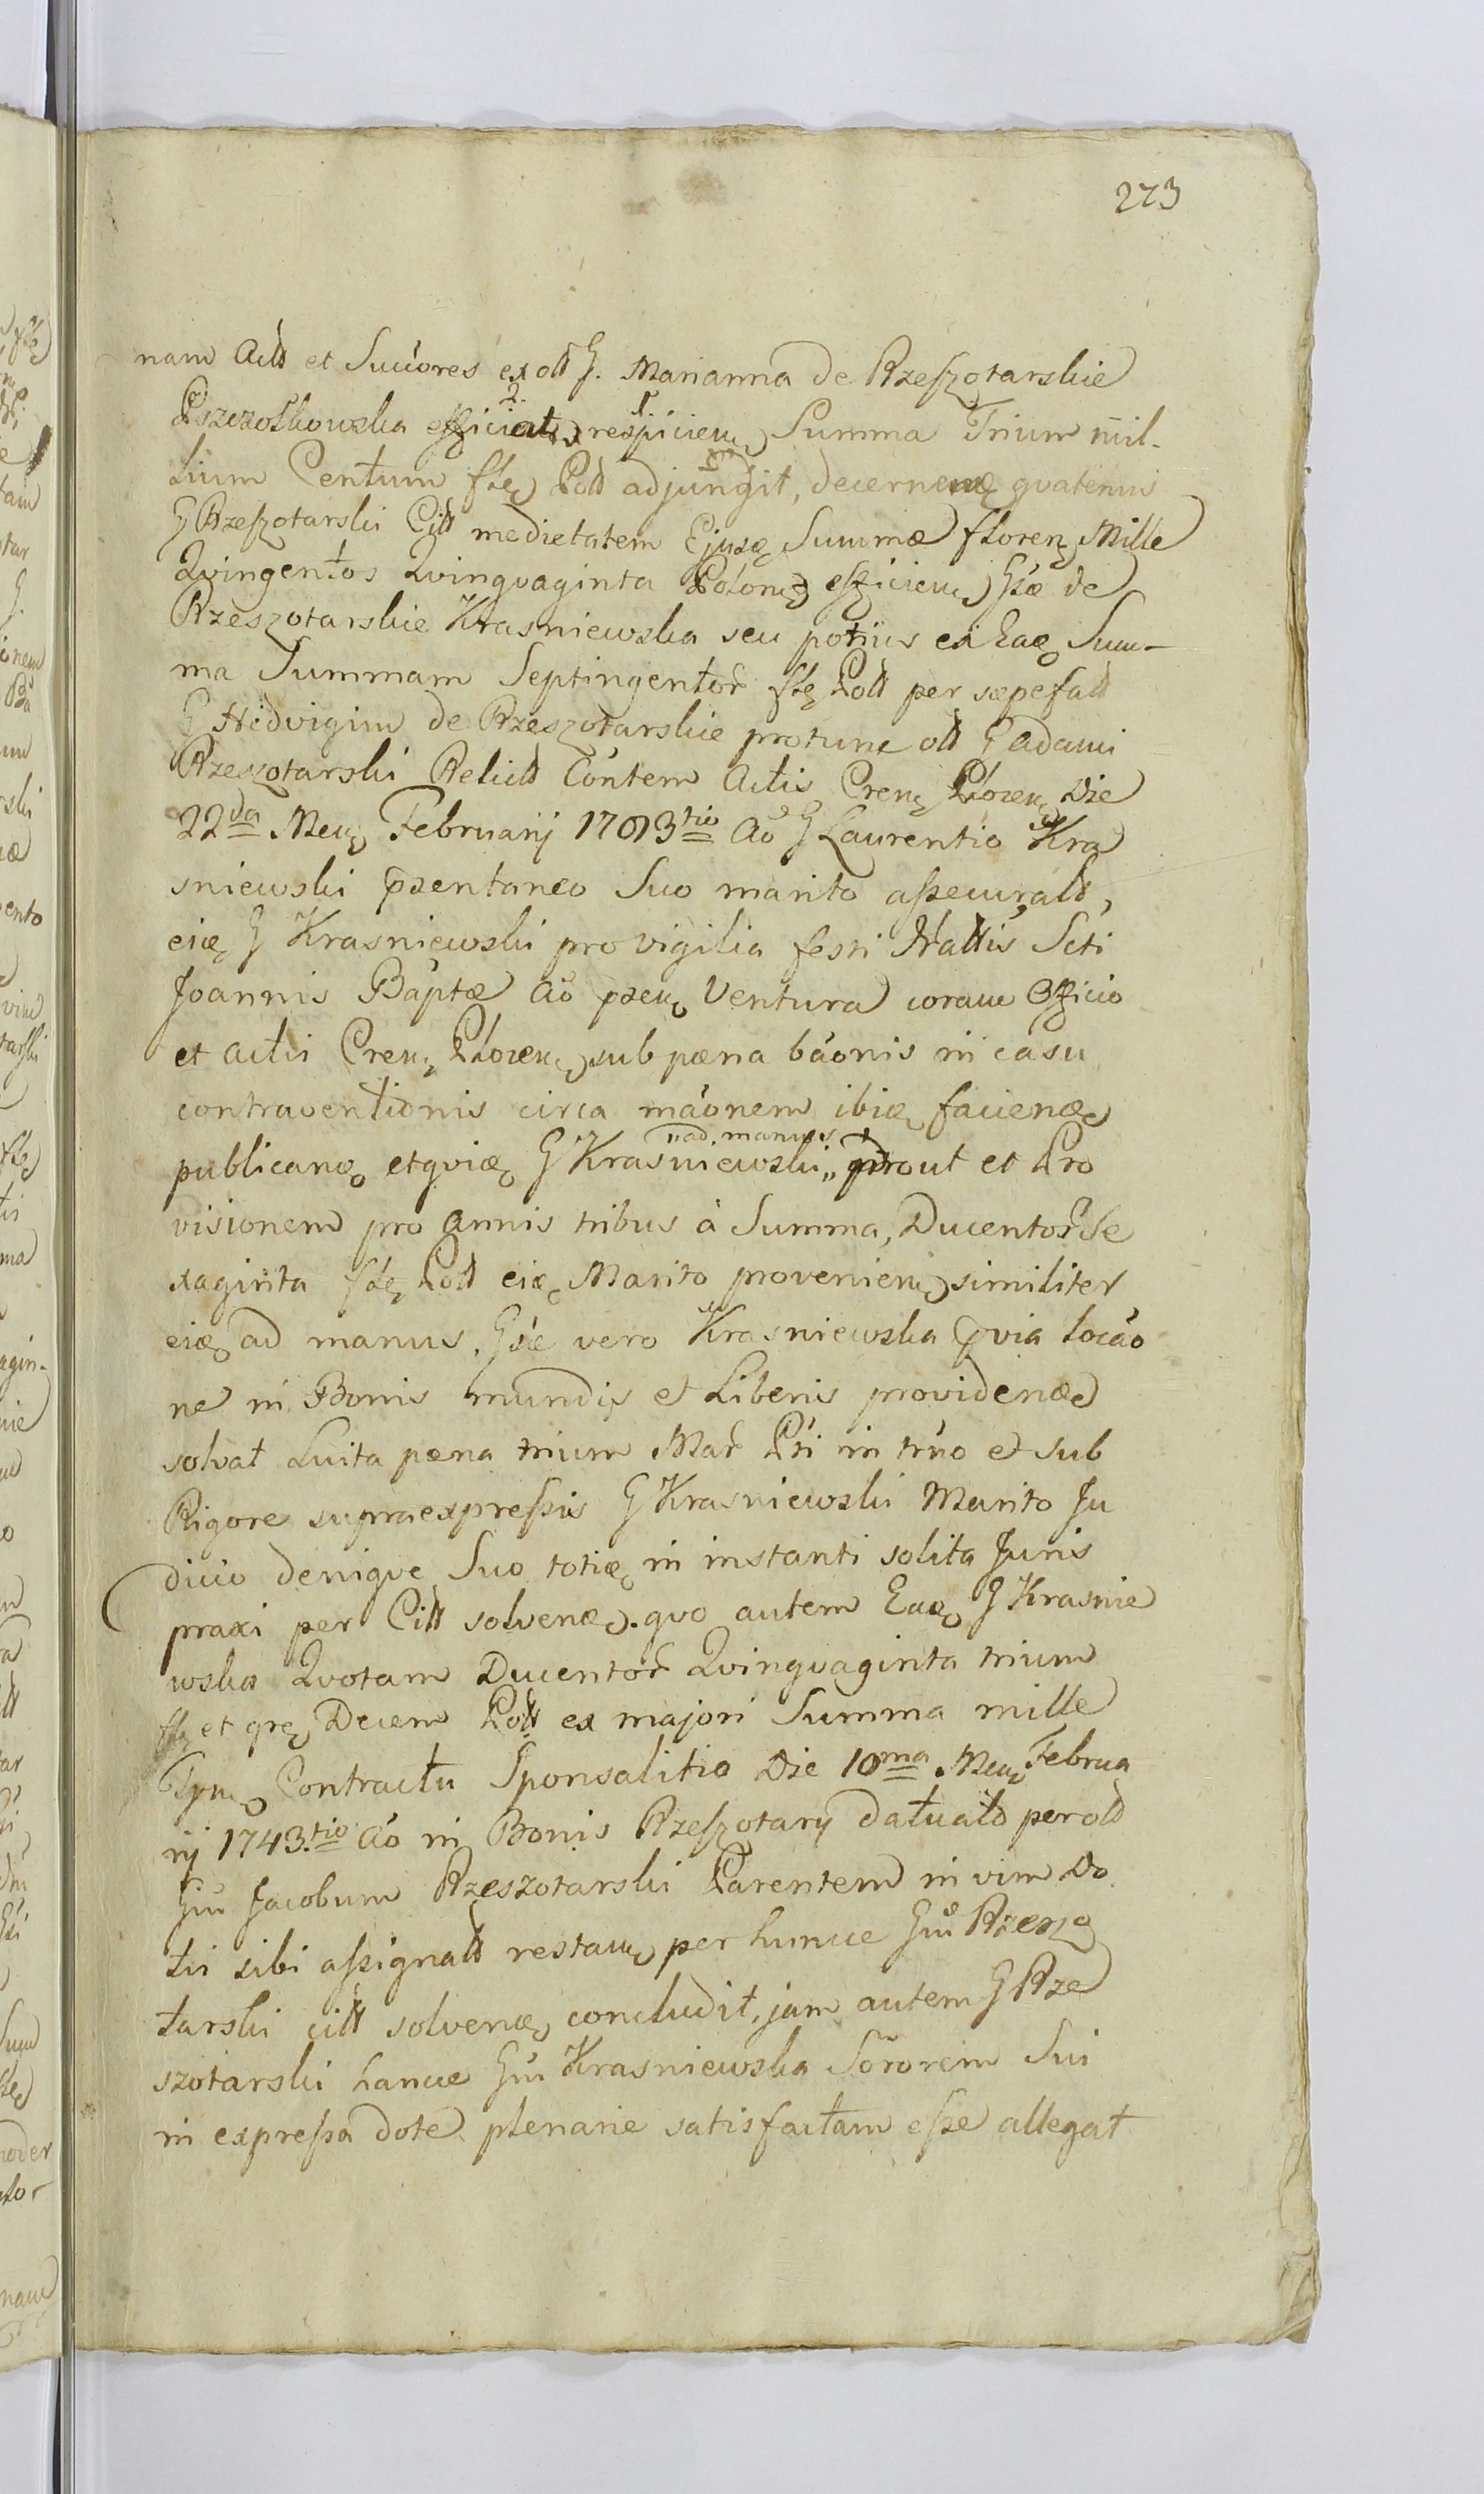 273
nam Actt et Succores ex ott G. Marianna de Rzeszotarskie
Pszczołkowska efficiatr respicien Summa Trium mil-
lium Centum flę Poll adjungit, decernenę qvatenus
G Rzeszotarski Citt medietatem Ejusę Summæ floren Mille
Qvingentos Qvinqvaginta Polon efficien Gsæ de
Rzeszotarskie Krasniewska seu potius ex Eaę Sum-
ma Summam Septingentor flę Poll per sæpefatt
G Hedvigim de Rzeszotarskie protunc ott G Adami
Rzeszotarski Relictt Contem Actis Cren Plocen Die
22da Men Februarij 1703tio Ao G Laurentio Kra
sniewski psentaneo Suo marito assecuratt,
eię G Krasniewski pro vigilia festi Nattis Scti
Joannis Baptæ Ao psen Ventura coram Officio
et Actis Cren Plocen sub pæna báonis in casu
contraventionis circa máonem ibię facienę
publicanę etqvię G Krasniewski „ad manus„ prout et Pro
visionem pro Annis tribus à Summa, Ducentor Se
xaginta flę Poll eię Marito provenien similiter
eię ad manus. Gsæ vero Krasniewska pvia locáo
ne in Bonis mundis et Liberis providenę
solvat Luita pæna trium Mar Pti in trno et sub
Rigore supraexpressis G Krasniewski Marito Ju
dicio deniqve Suo totię in instanti solita Juris
praxi per Citt solvenę. qvo autem Eaę G Krasnie
wska Qvotam Ducentor Qvinqvaginta trium
flę et grę Decem Poll ex majori Summa mille
Tyn Contractu Sponsalitio Die 10ma Men Februa
rij 1743.tio Ao in Bonis Rzeszotary datuatt per ott
Gm Jacobum Rzeszotarski Parentem in vim Do
tis sibi assignatt restan per hunce Gm Rzeszo
tarski citt solvenę concludit, jam autem G Rze
szotarski hance Gm Krasniewska Sororem Sui
in expressa dote plenarie satisfactam esse allegat